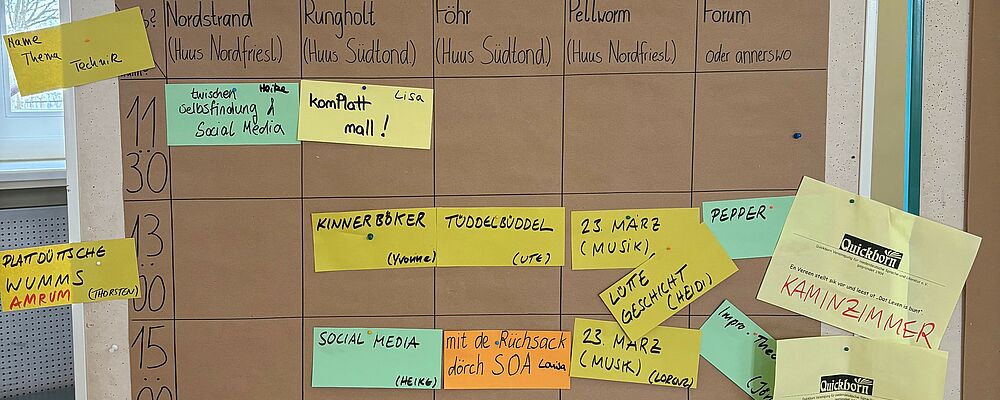 Name
Thema
Technik
Nordstrand
(Huus Nordfriesl.)
Rungholt
(Huus Südtond.)
Föhr
(Huus Südtond.)
Pellworm
(Huus Nordfriesl.)
Forum
oder annerswo
11
30
twischen Heike
Selbsfindung &
Social Media
komPlatt Lisa
mall!
13
00
PLATTDÜTTSCHE
WUMMS
AMRUM (THORSTEN)
KINNERBÖKER
(Yvonne)
TÜDDELBÜDDEL
(UTE)
23. MÄRZ
(MUSIK)
LÜTTE
GESCHICHT
(HEIDI)
PEPPER
Quickborn
En Vereen stellt sik vör und leest ut „Dat Leven is bunt"
KAMINZIMMER
15
00
SOCIAL MEDIA
(HEIKE)
mit de Rücksack
dörch SOA Louisa
23. MÄRZ
(MUSIK)
(LORENZ)
Impro
Quickborn